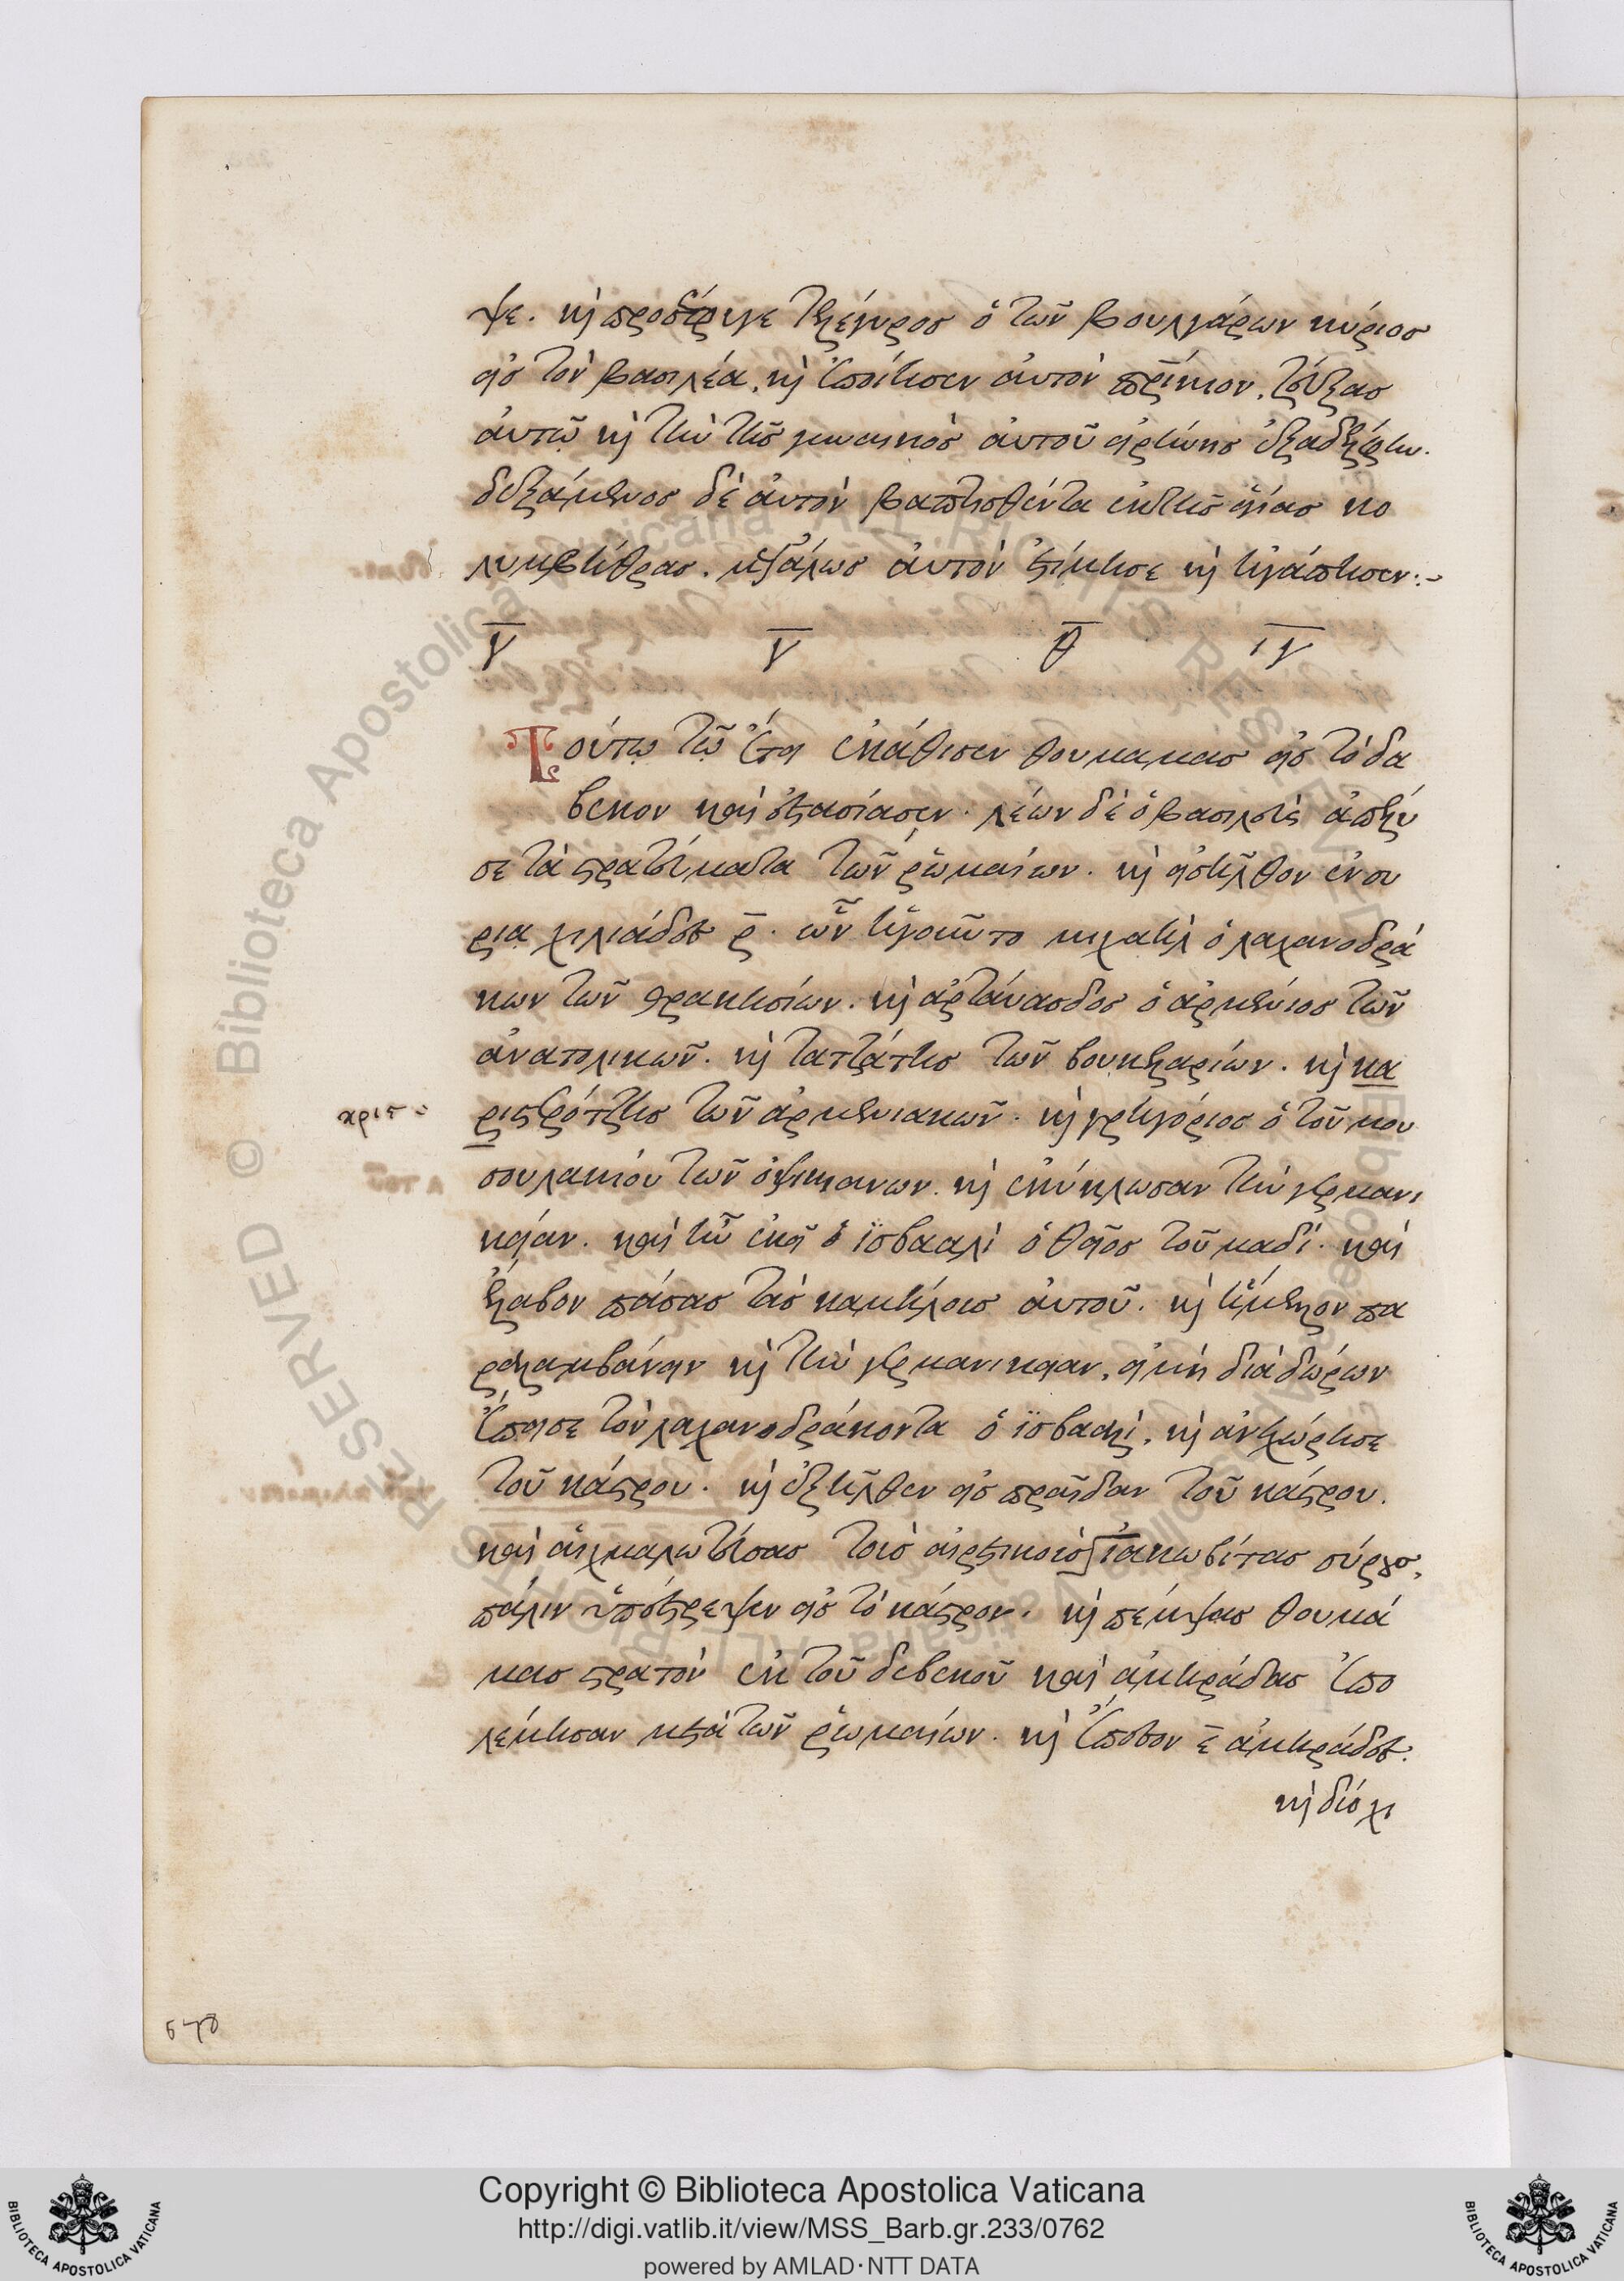 ψε. καὶ προσέφυγε τελέγυρος ὁ τῶν βουλγάρων κύριος
εἰς τὸν βασιλέα. καὶ ἐποίησεν αὐτὸν πρίκιον. ζεύξας
αὐτῷ καὶ τὴν τῆς γυναικὸς αὐτοῦ εἰρήνης ἐξαδέλφην.
δεξάμενος δὲ αὐτὸν βαπτισθέντα ἐκ τῆς ἁγίας κο
λυμβήθρας. μεγάλως αὐτὸν ἐτίμησε καὶ ἠγάπησεν:~
γ γ θ ιγ
Τούτῳ τῷ ἔτει ἐκάθισεν θουμαμας εἰς τὸ δα
βεκον καὶ ἐστασίασεν. λέων δὲ ὁ βασιλεὺς ἀπέλυ
σε τὰ στρατεύματα τῶν ῥωμαίων. καὶ εἰσῆλθον ἐν συ
ρια χιλιάδες ρ. ὧν ἡγοῦντο μιχαὴλ ὁ λαχανοδρά
κων τῶν θρακησίων. καὶ ἀρτάυασδος ὁ ἀρμένιος τῶν
ἀνατολικῶν. καὶ τατζάτης τῶν βουκελλαρίων. καὶ κα
ριστερότζης τῶν ἀρμενιακῶν. καὶ γρηγόριος ὁ τοῦ μου
αριστ~
σουλακίου τῶν ὀψικιανων. καὶ ἐκύκλωσαν τὴν γερμανι
κείαν. καὶ ἦν ἐκεῖ ὁ ἰσβααλὶ ὁ θεῖος τοῦ μαδί. καὶ
ἔλαβον πάσας τὰς καμήλους αὐτοῦ. καὶ ἤμελλον πα
ραλαμβάνειν καὶ τὴν γερμανικειαν, εἰ μὴ διὰ δώρων
ἔπεισε τὸν λαχανοδράκοντα ὁ ἰσβααλὶ, καὶ ἀνεχώρησε
τοῦ κάστρου. καὶ ἐξῆλθεν εἰς πραῖδαν τοῦ κάστρου.
καὶ αἰχμαλωτεύσας τοὺς αἱρετικοὺς ἰακωβίτας σύρους,
πάλιν ὑπέστρεψεν εἰς τὸ κάστρον. καὶ πέμψας θουμά
μας στρατὸν ἐκ τοῦ δεβεκοῦ καὶ ἀμηράδας ἐπο
λέμησαν μετὰ τῶν ῥωμαίων. καὶ ἔπεσον ε ἀμηράδες.
καὶ δισχι
578
Copyright © Biblioteca Apostolica Vaticana
http://digi.vatlib.it/view/MSS_Barb.gr.233/0762
powered by AMLAD·NTT DATA